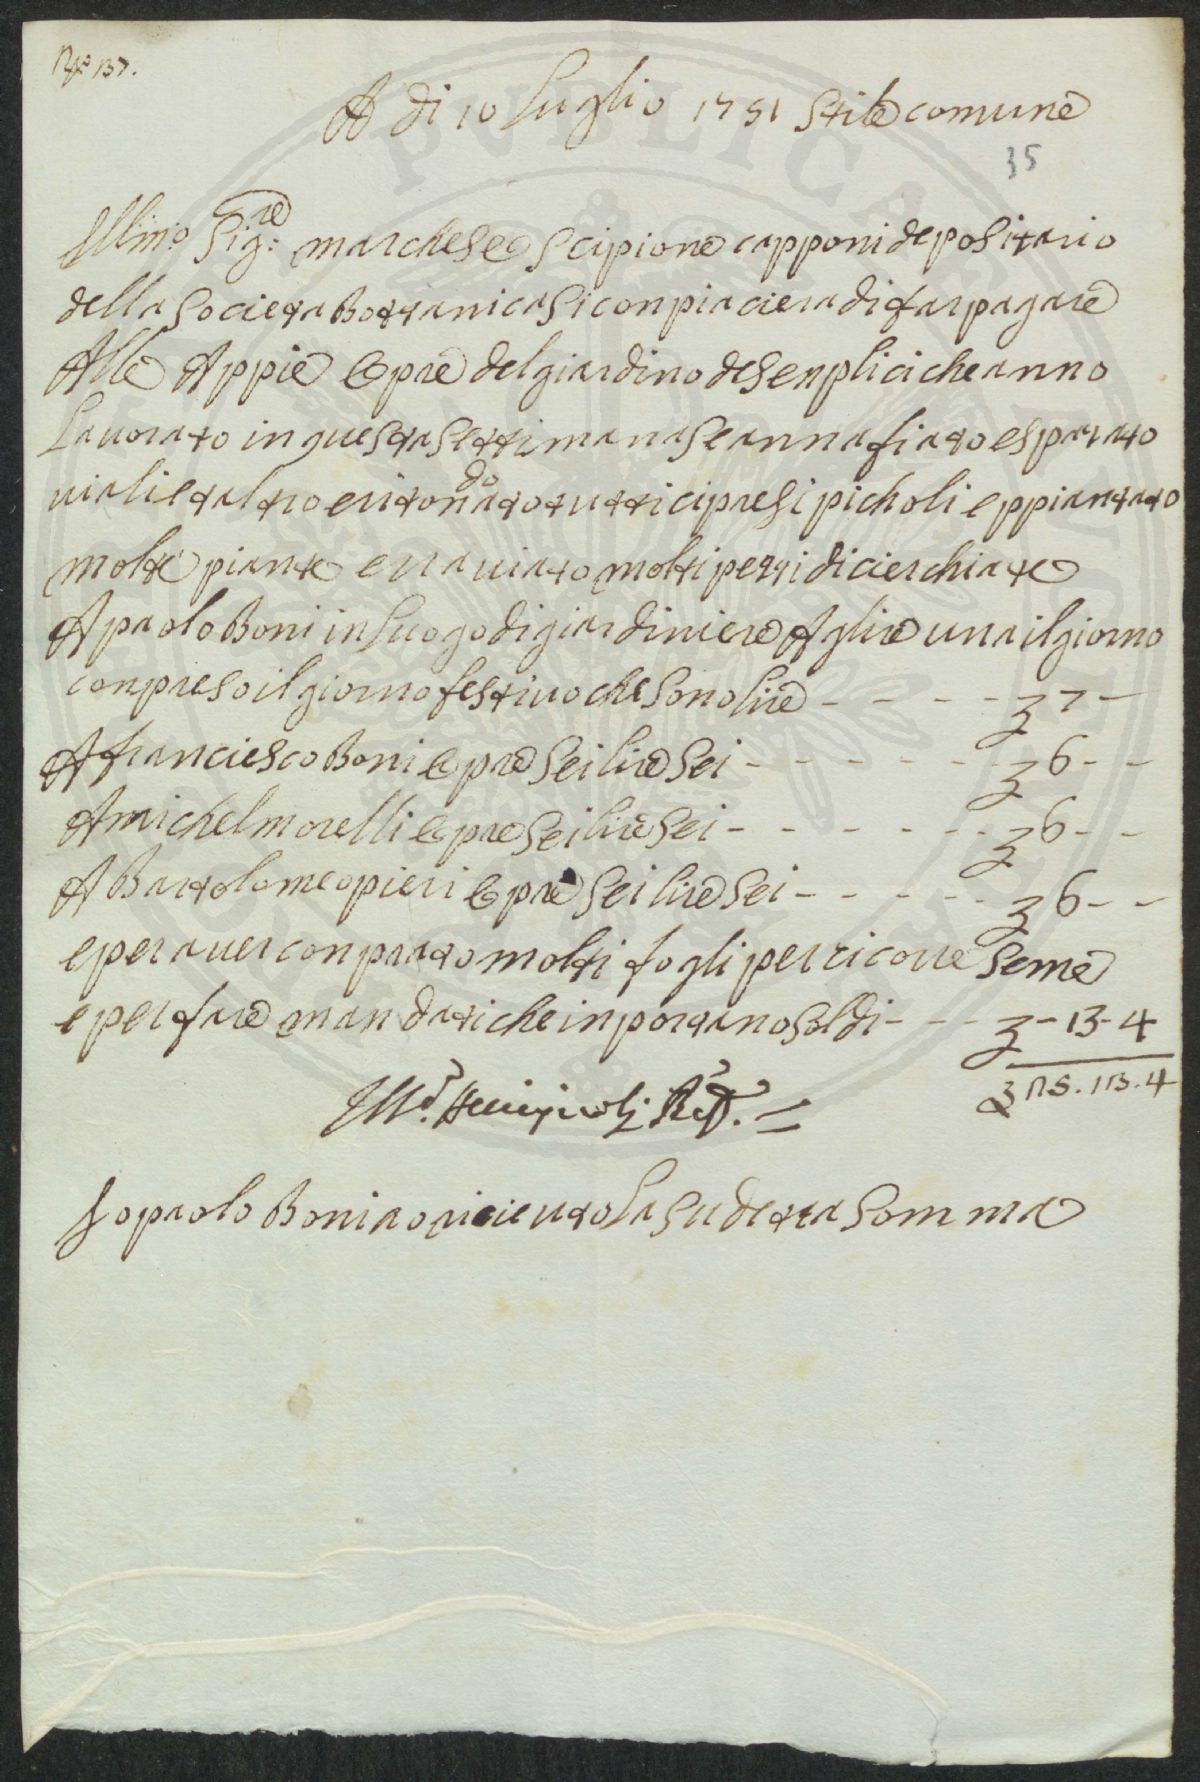 No 137.
A di 10 Luglio 1751 Stile comune
35
Illmo Sigre: marchese Scipione capponi depositario
della Societa Bottanica Si conpiaciera di far pagare
Alle Appie Opre del giardino de Senplici che anno
Lavorato in questa Settimana Se annafiato e sparato
viali et altro e ritondato tutti i cipresi picholi e ppiantato
molte piante e rraviato molti pezzi di cierchiate
A paolo Boni in Luogo di giardiniere A glire una il giorno
conpreso il giorno festivo che Sono lire - - - - 7 -
A franciesco Boni Opre Sei lire Sei - - - - - - 6 - -
A michel morelli Opre Sei lire Sei - - - - - - 6 - -
A Bartolomeo pieri Opre Sei lire Sei - - - - - 6 - -
e per aver conprato molti fogli per ricorre Seme
e per fare mandati che inportano Soldi - - - - 13 - 4
25. 13. 4
Io paolo Boni ao ricieuto La Sudetta Somma
PUBLICA